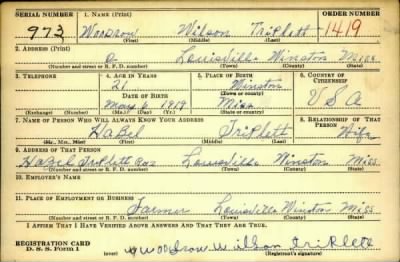 SERIAL NUMBER 1. NAME (Print) ORDER NUMBER
973 Woodrow Wilson Triplett 1419
(First) (Middle) (Last)
2. ADDRESS (Print)
Louisville Winston Miss
(Number and street or R. F. D. number) (Town) (County) (State)
3. TELEPHONE 4. AGE IN YEARS 5. PLACE OF BIRTH 6. COUNTRY OF CITIZENSHIP
21 Winston
DATE OF BIRTH (Town or county)
May 6 1919 Miss. U S A
(Exchange) (Number) (Mo.) (Day) (Yr.) (State or country)
7. NAME OF PERSON WHO WILL ALWAYS KNOW YOUR ADDRESS 8. RELATIONSHIP OF THAT PERSON
Hazel Triplett Wife
(Mr., Mrs., Miss) (First) (Middle) (Last)
9. ADDRESS OF THAT PERSON
Hazel Triplett Louisville Winston Miss
(Number and street or R. F. D. number) (Town) (County) (State)
10. EMPLOYER'S NAME
11. PLACE OF EMPLOYMENT OR BUSINESS
Farmer Louisville Winston Miss
(Number and street or R. F. D. number) (Town) (County) (State)
I AFFIRM THAT I HAVE VERIFIED ABOVE ANSWERS AND THAT THEY ARE TRUE.
REGISTRATION CARD
D. S. S. Form 1 (over) Woodrow Wilson Triplett
(Registrant's signature)